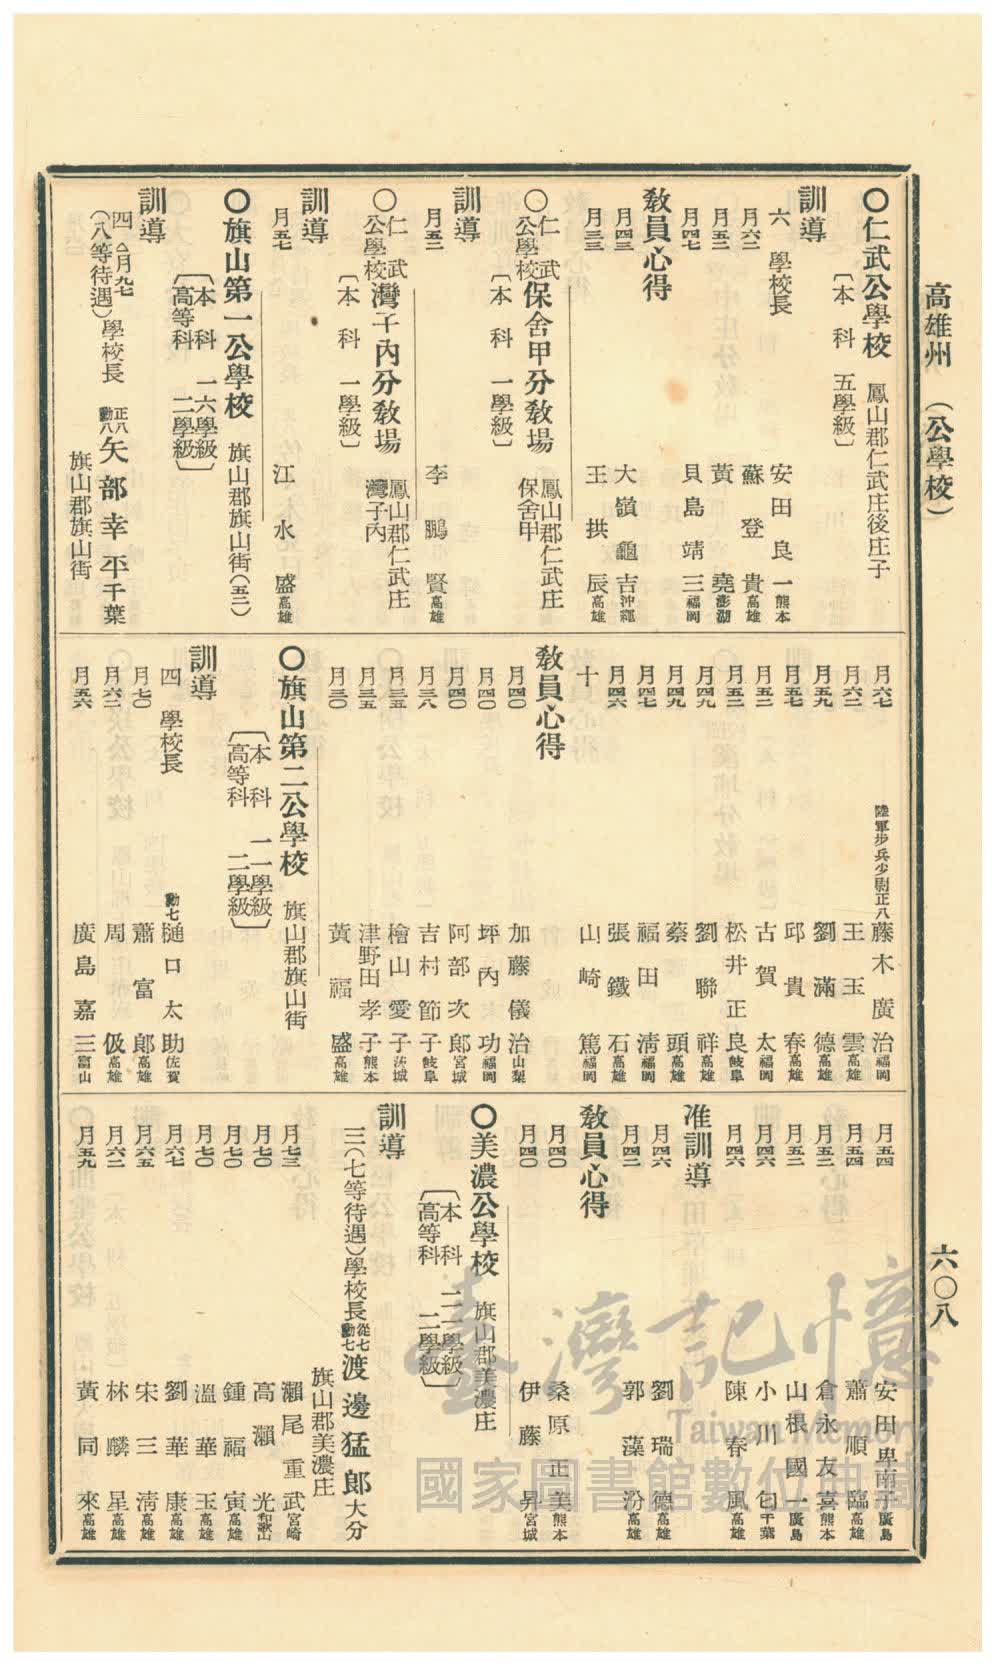 高雄州 (公學校)
六〇八
〇仁武公學校 鳳山郡仁武庄後庄子
〔本科 五學級〕
訓導
六 學校長 安田良一 熊本
月六二 蘇登貴 高雄
月五二 黃堯 澎湖
月四七 貝島靖三 福岡
教員心得
月四三 大嶺龜吉 沖繩
月三三 王拱辰 高雄
〇仁武公學校保舍甲分教場 鳳山郡仁武庄保舍甲
〔本科 一學級〕
訓導
月五二 李鵬賢 高雄
〇仁武公學校灣子內分教場 鳳山郡仁武庄灣子內
〔本科 一學級〕
訓導
月五七 江水盛 高雄
〇旗山第一公學校 旗山郡旗山街(五三)
〔本科 一六學級
高等科 二學級〕
訓導
四 月九七 (八等待遇)學校長 正八勳八 矢部幸平 千葉
旗山郡旗山街
月六七 陸軍步兵少尉正八 藤木廣治 福岡
月六二 王玉雲 高雄
月五九 劉滿德 高雄
月五七 邱貴春 高雄
月五二 古賀太 福岡
月五二 松井正良 岐阜
月四九 劉聯祥 高雄
月四九 蔡頭 高雄
月四七 福田清 福岡
月四六 張鐵石 高雄
十 山崎篤 福岡
教員心得
月四〇 加藤儀治 山梨
月四〇 坪內功 福岡
月四〇 阿部次郎 宮城
月三八 吉村節子 岐阜
月三五 檜山愛子 茨城
月三五 津野田孝子 熊本
月三〇 黃福盛 高雄
〇旗山第二公學校 旗山郡旗山街
〔本科 一一學級
高等科 二學級〕
訓導
四 學校長 勳七 樋口太助 佐賀
月七〇 蕭富郎 高雄
月六二 周伋 高雄
月五六 廣島嘉三 富山
月五四 安田卑南子 廣島
月五四 蕭順臨 高雄
月五二 倉永友喜 熊本
月五二 山根國一 廣島
月四六 小川匂 千葉
月四六 陳春風 高雄
准訓導
月四六 劉瑞德 高雄
月四二 郭藻汾 高雄
教員心得
月四〇 桑原正美 熊本
月四〇 伊藤昇 宮城
〇美濃公學校 旗山郡美濃庄
〔本科 二二學級
高等科 二學級〕
訓導
三(七等待遇)學校長 從七勳七 渡邊猛郎 大分
旗山郡美濃庄
月七三 瀨尾重武 宮崎
月七〇 高瀨光 和歌山
月七〇 鍾福寅 高雄
月七〇 溫華玉 高雄
月六七 劉華康 高雄
月六五 宋三清 高雄
月六二 林麟星 高雄
月五九 黃同來 高雄
臺灣記憶
Taiwan Memory
國家圖書館數位典藏